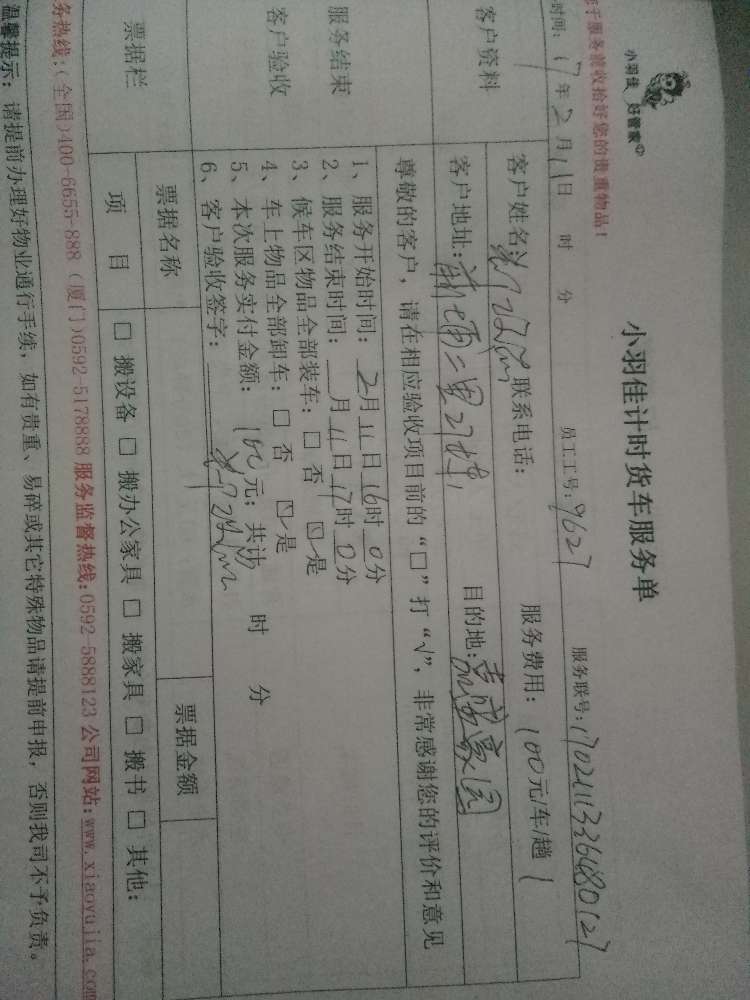 小羽佳 好管家
小羽佳计时货车服务单
手服务前收拾好您的贵重物品！
员工工号：9627
服务联号：
时间：17年2月11日 时 分
客户资料
客户姓名： 联系电话： 服务费用：100元/车/趟
客户地址： 二里27栋 目的地： 家园
尊敬的客户，请在相应验收项目前的“□”打“√”，非常感谢您的评价和意见
服务结束
客户验收
1、服务开始时间：2月11日16时0分
2、服务结束时间： 月11日17时0分
3、候车区物品全部装车：□ 否 ☑ 是
4、车上物品全部卸车：□ 否 ☑ 是
5、本次服务实付金额：100元；共 时 分
6、客户验收签字：
票据栏
票据名称 票据金额
项 目 □ 搬设备 □ 搬办公家具 □ 搬家具 □ 搬书 □ 其他：
务热线：(全国)400-6655-888 (厦门)0592-5178888 服务监督热线:0592-5888123 公司网站:www.xiaoyujia.com
温馨提示：请提前办理好物业通行手续，如有贵重、易碎或其它特殊物品请提前申报，否则我司不予负责。